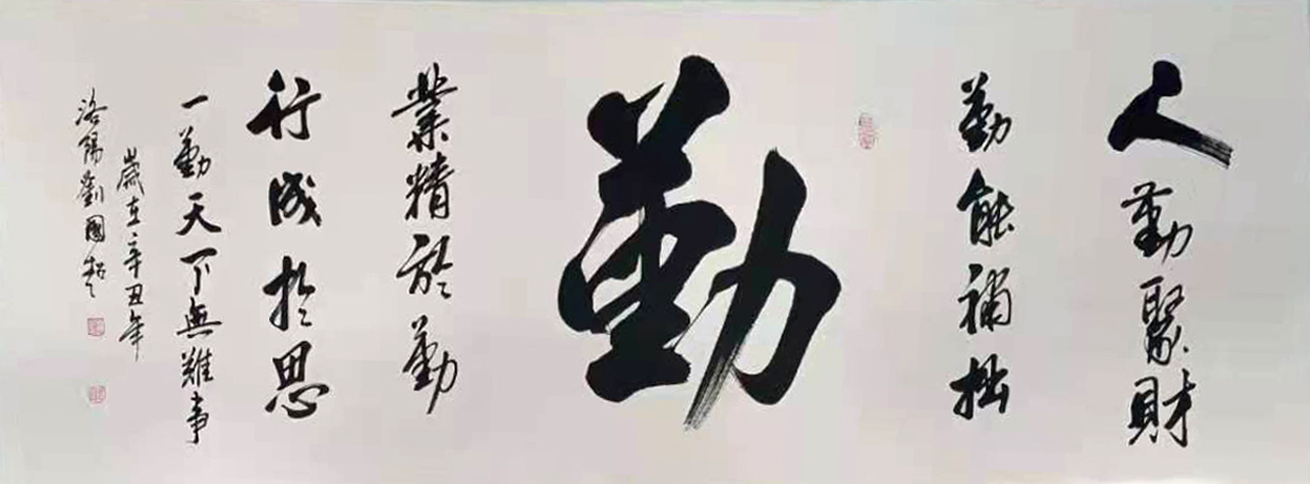 人勤聚財
勤能補拙
勤
業精於勤
行成於思
一勤天下無難事
歲在辛丑年
洛陽劉國超